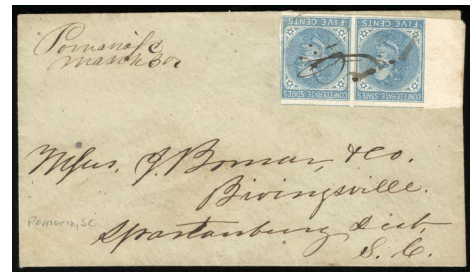 Pomaria SC
March 30
FIVE CENTS
FIVE CENTS
CONFEDERATE STATES
CONFEDERATE STATES
Messrs. J. Bomar, & Co.
Bivingsville.
Pomaria, SC
Spartanburg Dist.
S. C.